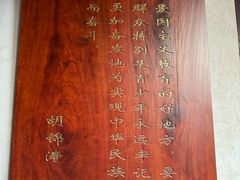 爱国主义教育的好地方，要
群众特别是青少年永远牢记
更加奋发地为实现中华民族
而奋斗。
胡锦涛